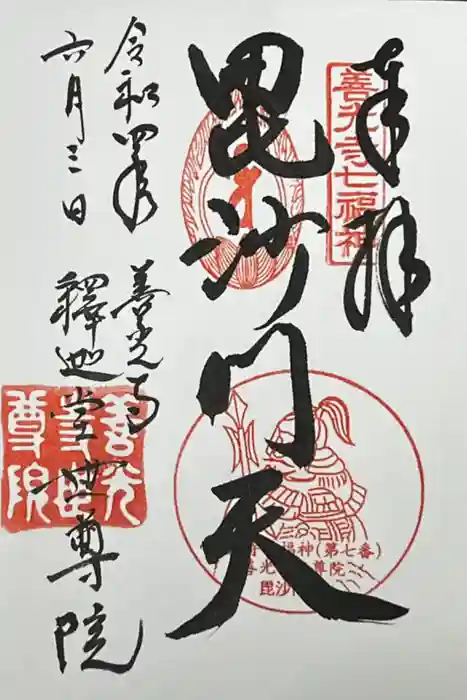 奉拝
善光寺七福神
毘沙門天
福神(第七番)
善光 尊院
毘沙
令和四年
六月三日
善光寺
釋迦堂世尊院
善光
尊院